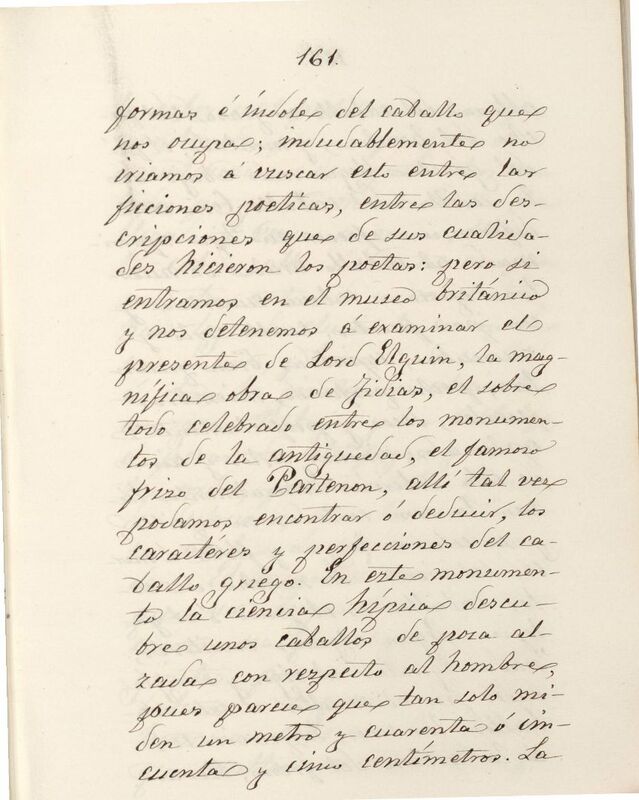 161.
formas é índole del caballo que
nos ocupa; indudablemente no
iriamos á vuscar esto entre las
ficciones poeticas, entre las des-
cripciones que de sus cualida-
des hicieron los poetas: pero si
entramos en el museo británico
y nos detenemos á examinar el
presente de Lord Elguin, la mag-
nífica obra de Fidias, el sobre
todo celebrado entre los monumen-
tos de la antiguedad, el famoso
frizo del Partenon, allí tal vez
podamos encontrar ó deducir, los
caractéres y perfecciones del ca-
ballo griego. En este monumen-
to la ciencia hípica descu-
bre unos caballos de poca al-
zada con respecto al hombre,
pues parece que tan solo mi-
den un metro y cuarenta ó cin-
cuenta y cinco centímetros. La